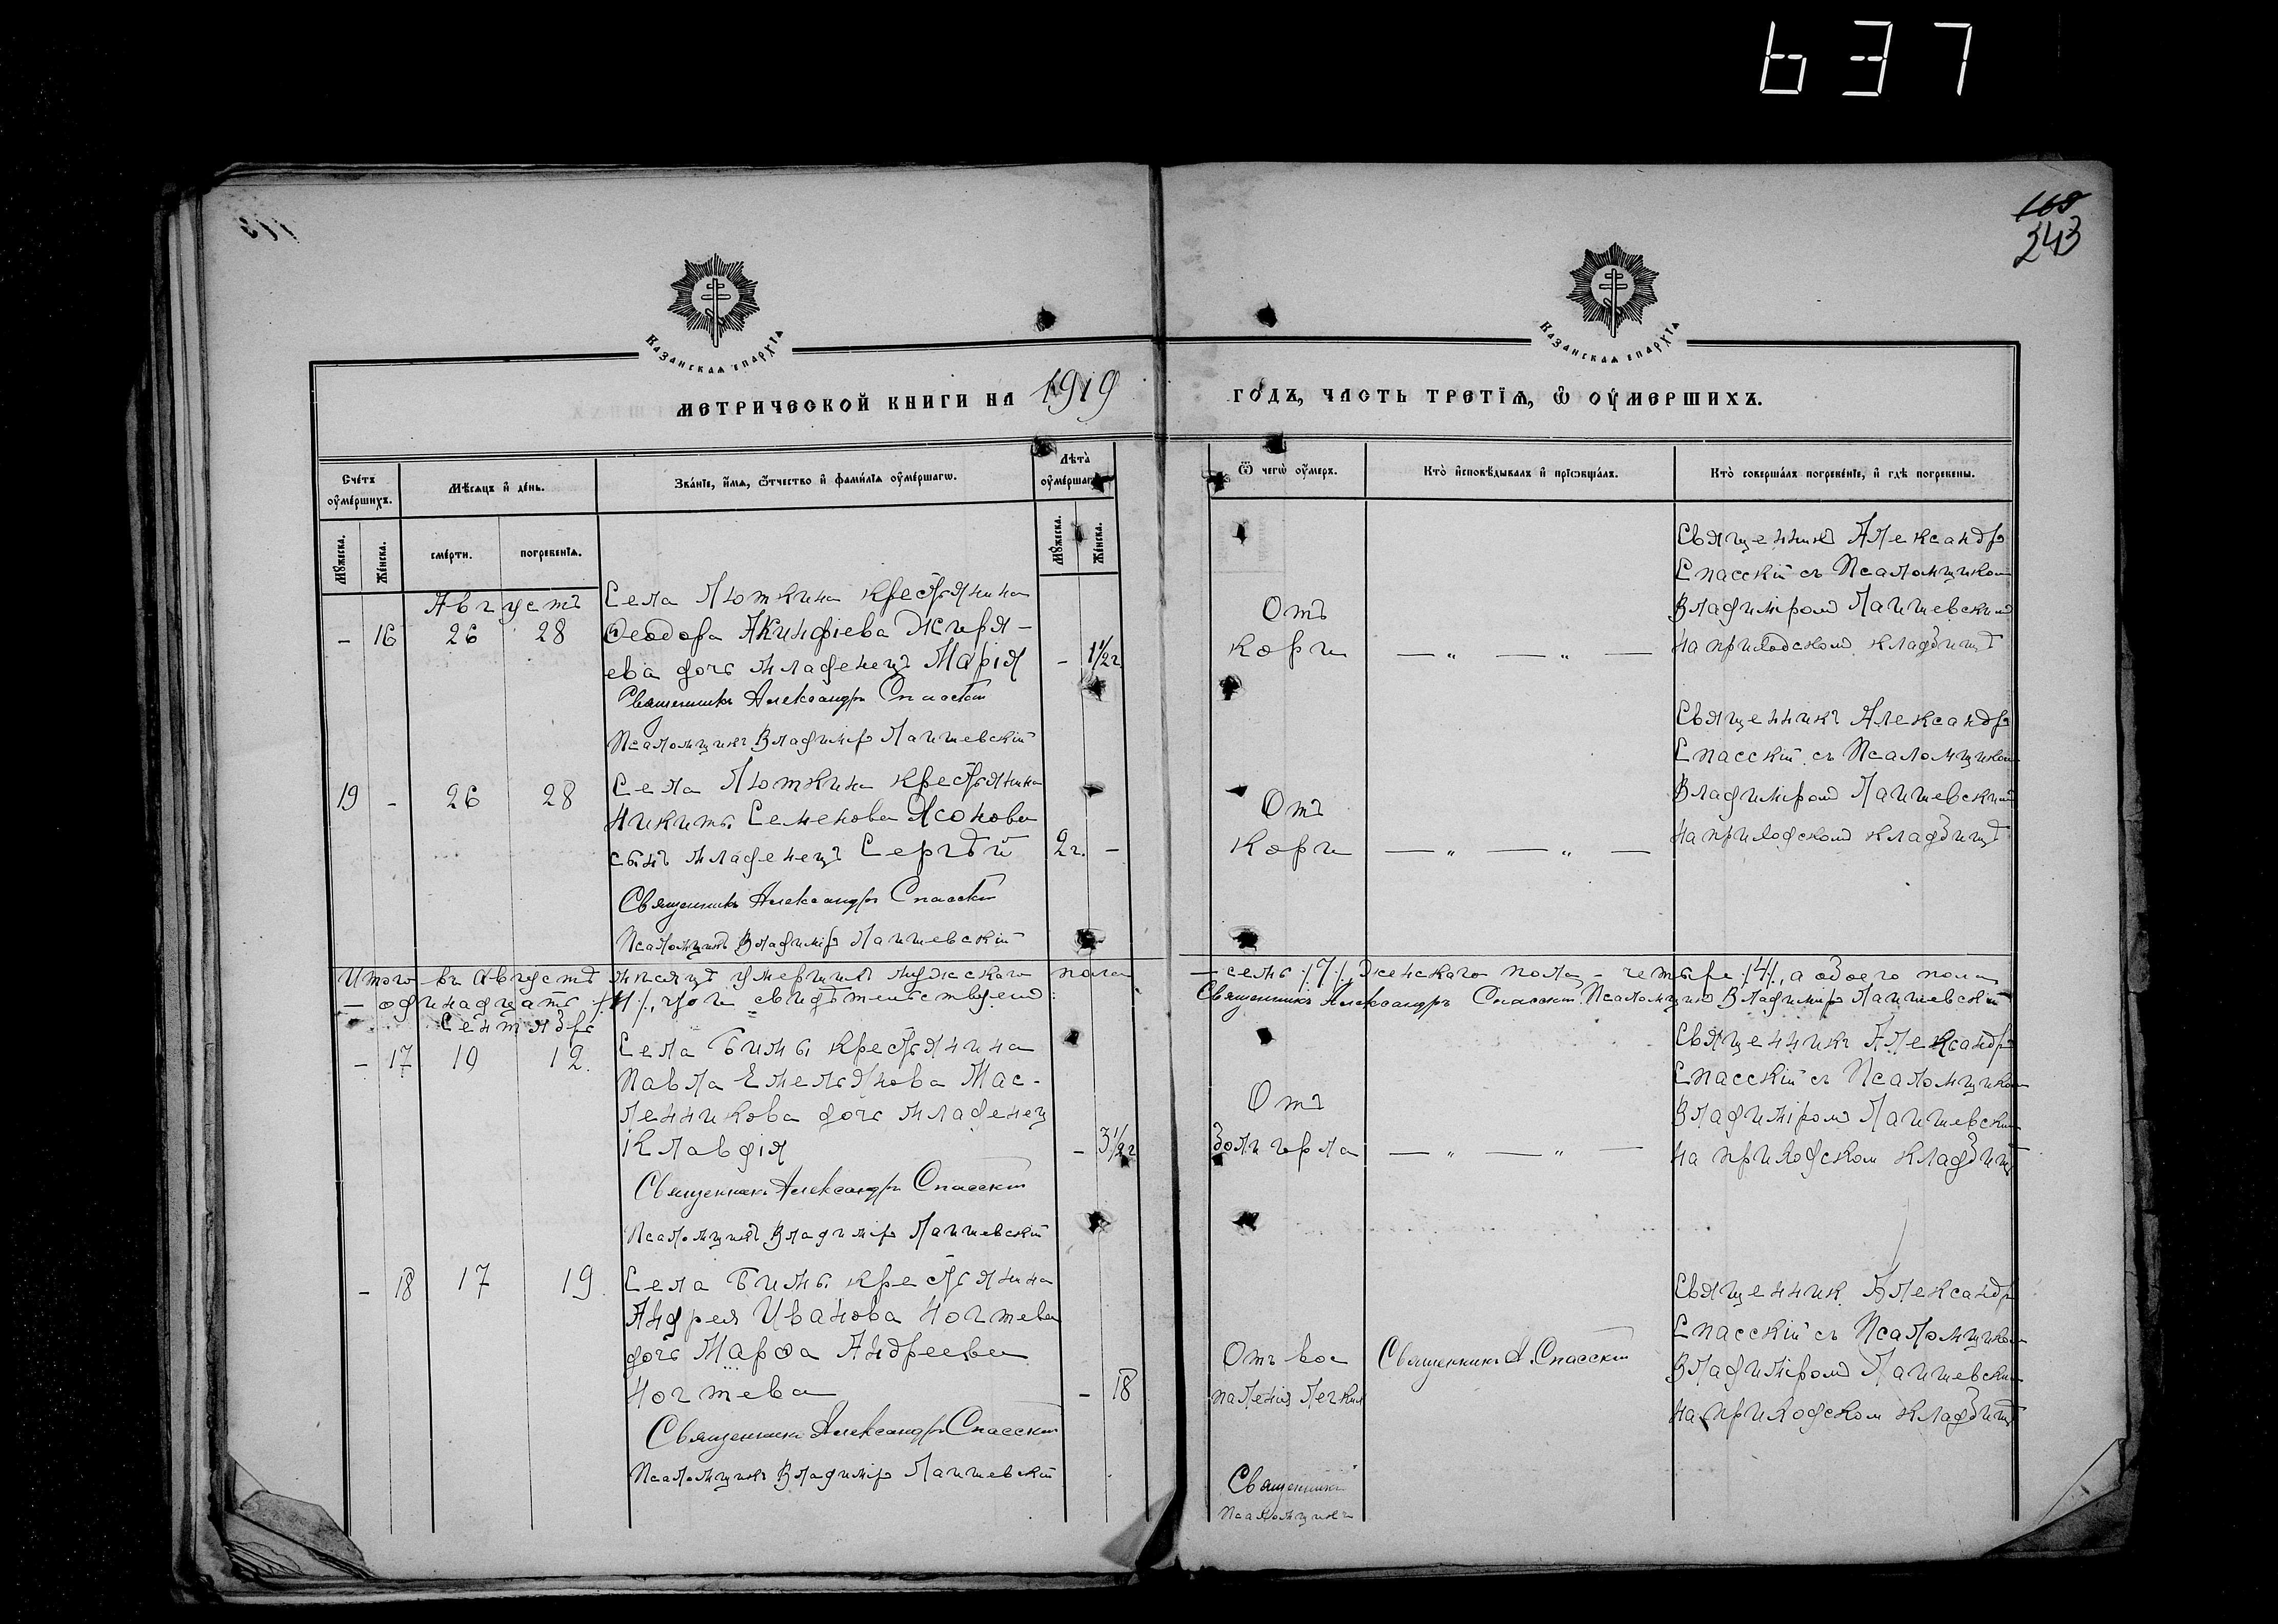 637
168
243
Казанская епархїя
Казанская епархїя
Метрической книги на 1919
годъ, часть третїѧ, ѡ оумершихъ.
Счетъ оумершихъ.
Мѣсяцъ и день.
Званїе, имя, ѿчество и фамилїя оумершагѡ.
Лѣта оумершагѡ
Ѿ чегѡ оумеръ.
Кто исповѣдывалъ и прїѡбщалъ.
Кто совершалъ погребенїе, и гдѣ погребены.
Мужеска.
Женска.
смерти.
погребенїя.
Мужеска.
Женска.
Августъ
- 16 26 28
Села Люткина крестьянина
Ѳеодора Акинфіева Жиря-
ева дочь младенецъ Марія - 1 1/2 г
Священникъ Александръ Спасскій
Псаломщикъ Владиміръ Лаишевскій
Отъ
кори — „ — „ —
Священникъ Александръ
Спасскій съ Псаломщикомъ
Владиміромъ Лаишевскимъ
на приходскомъ кладбищѣ
19 - 26 28
Села Люткина крестьянина
Никиты Семенова Ясонова
сынъ младенецъ Сергѣй 2 г. -
Священникъ Александръ Спасскій
Псаломщикъ Владиміръ Лаишевскій
Отъ
кори — „ — „ —
Священникъ Александръ
Спасскій съ Псаломщикомъ
Владиміромъ Лаишевскимъ
на приходскомъ кладбищѣ
Итого въ Августѣ мѣсяцѣ умершихъ мужского пола — семь /7/, женскаго пола - четыре /4/, а обоего пола
— одинадцать /11/, что и свидѣтельствуемъ: Священникъ Александръ Спасскій. Псаломщикъ Владиміръ Лаишевскій
Сентябрь
- 17 10 12.
Села Бимы крестьянина
Павла Емельянова Мас-
ленникова дочь младенец
Клавдія - 3 1/2 г
Священникъ Александръ Спасскій
Псаломщикъ Владиміръ Лаишевскій
Отъ
боли горла — „ — „ —
Священникъ Александръ
Спасскій съ Псаломщиком
Владиміромъ Лаишевским
на приходском кладбищѣ
- 18 17 19.
Села Бимы крестьянина
Андрея Иванова Ногтева
дочь Марѳа Андреева
Ногтева - 18
Священникъ Александръ Спасскій
Псаломщикъ Владиміръ Лаишевскій
Отъ вос
паленія легких
Священникъ А. Спасскій
Священник Александръ
Спасскій съ Псаломщиком
Владиміромъ Лаишевским
на приходском кладбищѣ
Священникъ
Псаломщикъ